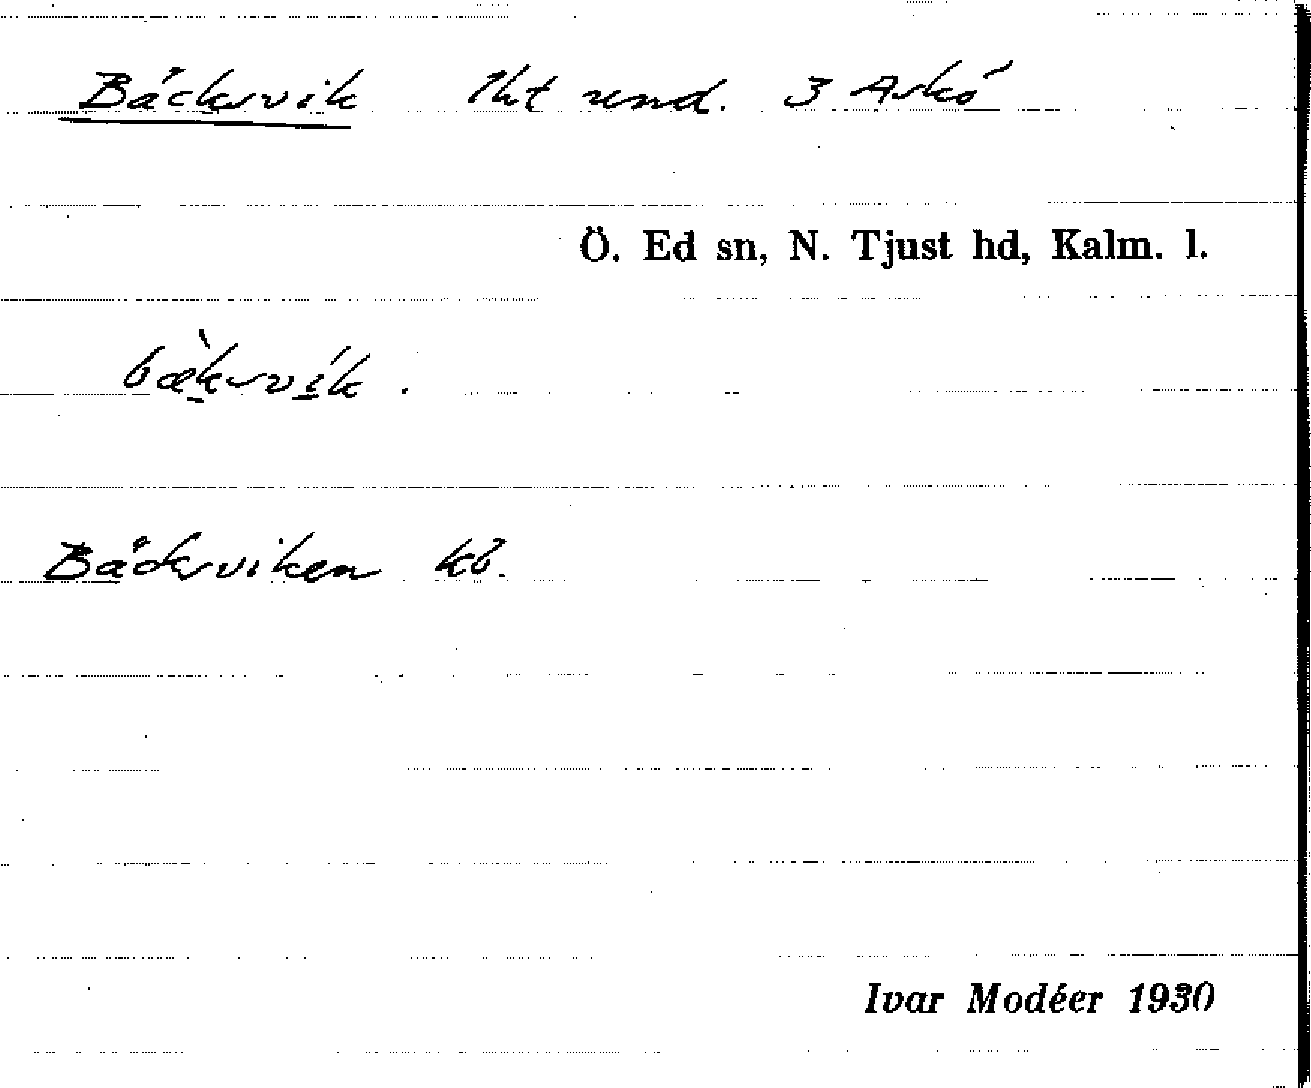 Bäcksvik lht und. 3 Askö
Ö. Ed sn, N. Tjust hd, Kalm. l.
bæ̀ksvík.
Bäcksviken kb.
Ivar Modéer 1930